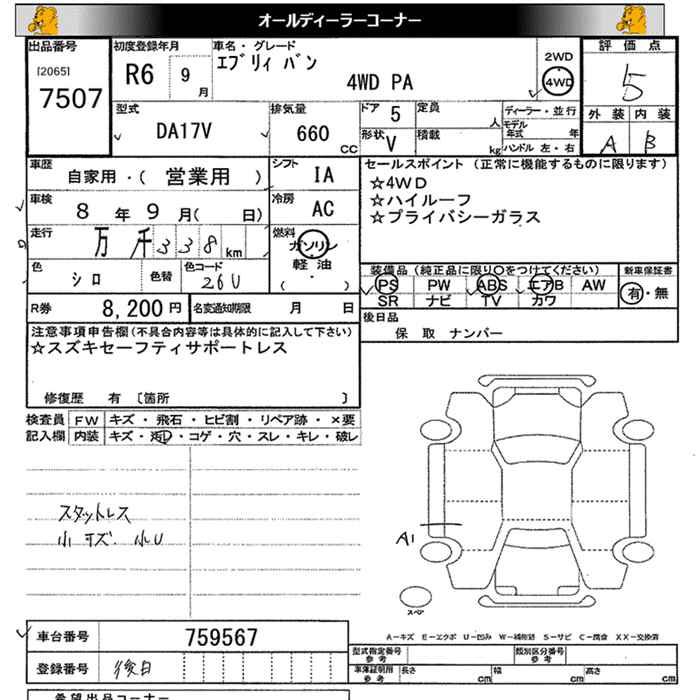 オールディーラーコーナー
出品番号
[2065]
7507
初度登録年月
R6 9月
車名・グレード
エブリィ バン
4WD PA
2WD
4WD
評価点
5
外装 内装
A B
型式
DA17V
排気量
660 CC
ドア 5
定員 人
形状 V
積載 kg
ディーラー・並行
モデル年式 年
ハンドル 左・右
車歴
自家用・( 営業用 )
シフト
IA
車検
8年 9月( 日)
冷房
AC
走行
万 千 3 3 8 km
燃料
ガソリン
軽油
・( )
色
シロ
色替
色コード
26U
R券
8,200円
名変通知期限 月 日
セールスポイント (正常に機能するものに限ります)
☆4WD
☆ハイルーフ
☆プライバシーガラス
装備品 (純正品に限り〇をつけてください)
PS PW ABS エアB AW
SR ナビ TV カワ
新車保証書
有・無
後日品
保 取 ナンバー
注意事項申告欄 (不具合内容等は具体的に記入して下さい)
☆スズキセーフティサポートレス
修復歴 有 [箇所 ]
検査員記入欄
FW キズ・飛石・ヒビ割・リペア跡・×要
内装 キズ・汚レ・コゲ・穴・スレ・キレ・破レ
スタットレス
小キズ. 小U
A1
スペア
A-キズ E-エクボ U-凹み W-補修跡 S-サビ C-腐食 XX-交換済
車台番号
759567
登録番号
後日
型式指定番号
参考
類別区分番号
参考
車庫証明用
参考
長さ cm 幅 cm 高さ cm
希望出品コーナー